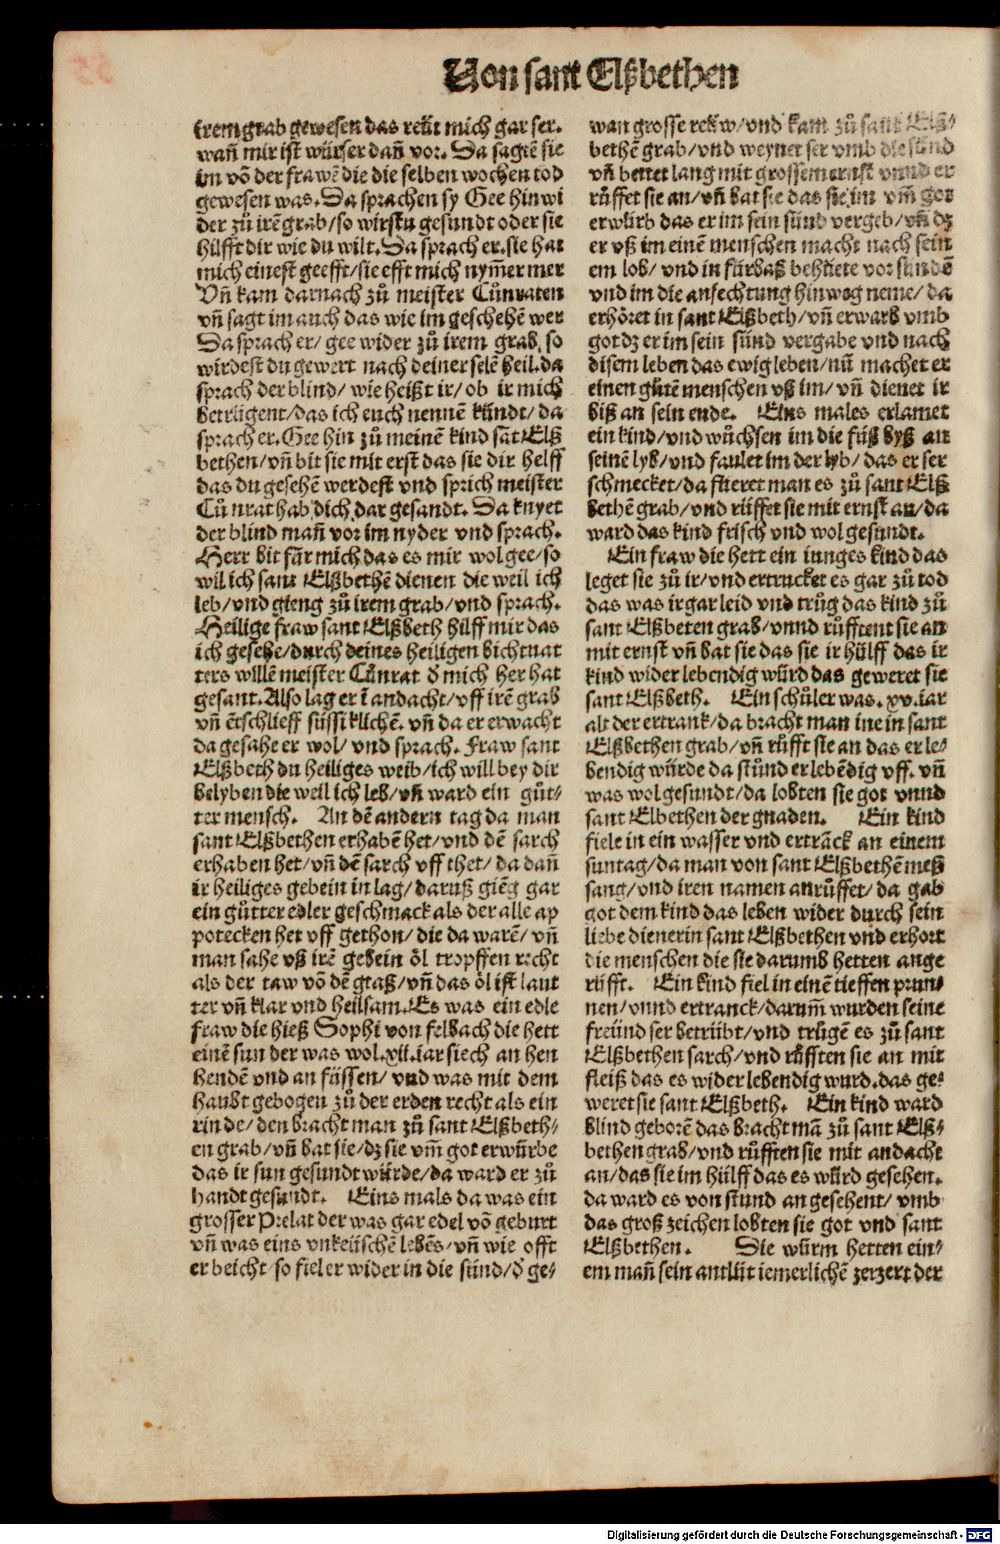 Von sant Elßbethen
irem grab gewesen das reüt mich gar ser.
wañ mir ist würser dañ vor. Da sagtē sie
im vō der frawē die die selben wochen tod
gewesen was. Da sprachen sy Gee hin wi
der zů irē grab/so wirstu gesundt oder sie
hilfft dir wie du wilt. Da sprach er. sie hat
mich einest geefft/sie efft mich nym̄er mer
Vñ kam darnach zů meister Cůnraten
vñ sagt im auch das wie im geschehē wer
Da sprach er/ gee wider zů irem grab, so
wirdest du gewert nach deiner selē heil. da
sprach der blind/ wie heißt ir/ob ir mich
betrügent/das ich euch nennē kündt/da
sprach er. Gee hin zů meinē kind sāt Elß
bethen/vñ bit sie mit erst das sie dir helff
das du gesehē werdest vnd sprich meister
Cůnrat hab dich dar gesandt. Da knyet
der blind mañ vor im nyder vnd sprach.
Herr bit für mich das es mir wol gee/so
wil ich sant Elßbethē dienen die weil ich
leb/vnd gieng zů irem grab/vnd sprach.
Heilige fraw sant Elßbeth hilff mir das
ich gesehe/durch deines heiligen bichtuat
ters willē meister Cůnrat d̄ mich her hat
gesant. Also lag er ī andacht/vff irē grab
vñ ētschlieff süssiklichē. vñ da er erwacht
da gesahe er wol/ vnd sprach. Fraw sant
Elßbeth du heiliges weib/ich will bey dir
belyben die weil ich leb/vñ ward ein güt⸗
ter mensch. An dē andern tag da man
sant Elßbethen erhabē het/vnd dē sarch
erhaben het/vñ dē sarch vff thet/ da dañ
ir heiliges gebein in lag/daruß giēg gar
ein gůtter edler geschmack als der alle ap
potecken het vff gethon/die da warē/ vñ
man sahe vß irē gebein öl tropffen recht
als der taw vō dē graß/vñ das öl ist laut
ter vñ klar vnd heilsam. Es was ein edle
fraw die hieß Sophi von felbach die hett
einē sun der was wol. xij. iar siech an hen
hendē vnd an füssen/ vnd was mit dem
haubt gebogen zů der erden recht als ein
rinde/den bracht man zů sant Elßbeth⸗
en grab/vñ bat sie/dz sie vm̄ got erwürbe
das ir sun gesundt würde/da ward er zů
handt gesundt. Eins mals da was ein
grosser Prelat der was gar edel vō geburt
vñ was eins vnkeüschē lebēs/vñ wie offt
er beicht so fiel er wider in die sünd/d̄ ge⸗
wan grosse reüw/vnd kam zů sant Elß⸗
bethē grab/vnd weynet ser vmb die sünd
vñ bettet lang mit grossem ernst vnnd er
rüffet sie an/vñ bat sie das sie im vm̄ got
erwürb das er im sein sünd vergeb/vñ dz
er vß im einē menschen macht nach sein
em lob/ vnd in fürbaß behüete vor sündē
vnd im die anfechtung hinweg neme/da
erhöret in sant Elßbeth/vñ erwarb vmb
got dz er im sein sünd vergabe vnd nach
disem leben das ewig leben/nū machet er
einen gůtē menschen vß im/ vñ dienet ir
biß an sein ende. Eins males erlamet
ein kind/vnd wůchsen im die füß byß an
seinē lyb/vnd faulet im der lyb/das er ser
schmecket/da fůeret man es zů sant Elß
bethē grab/vnd rüffet sie mit ernst an/da
ward das kind frisch vnd wol gesundt.
Ein fraw die hett ein iunges kind das
leget sie zů ir/vnd ertrucket es gar zů tod
das was ir gar leid vnd trůg das kind zů
sant Elßbeten grab/vnnd růfftent sie an
mit ernst vñ bat sie das sie ir hülff das ir
kind wider lebendig würd das geweret sie
sant Elßbeth. Ein schůler was. xv. iar
alt der ertrank/da bracht man ine in sant
Elßbethen grab/vñ růfft sie an das er le⸗
bendig würde da stůnd er lebēdig vff. vñ
was wol gesundt/da lobten sie got vnnd
sant Elbethen der gnaden. Ein kind
fiele in ein wasser vnd ertrāck an einem
suntag/da man von sant Elßbethē meß
sang/vnd iren namen anrůffet/da gab
got dem kind das leben wider durch sein
liebe dienerin sant Elßbethen vnd erhort
die menschen die sie darumb hetten ange
rüfft. Ein kind fiel in einē tieffen prun⸗
nen/vnnd ertranck/darum̄ wurden seine
freünd ser betrübt/vnd trůgē es zů sant
Elßbethen sarch/vnd růfften sie an mit
fleiß das es wider lebendig wurd. das ge⸗
weret sie sant Elßbeth. Ein kind ward
blind geborē das bracht mā zů sant Elß⸗
bethen grab/vnd růfften sie mit andacht
an/das sie im hülff das es würd gesehen.
da ward es von stund an gesehent/ vmb
das groß zeichen lobten sie got vnd sant
Elßbethen. Die würm hetten ein⸗
em mañ sein antlüt iemerlichē zerzert der
Digitalisierung gefördert durch die Deutsche Forschungsgemeinschaft - DFG